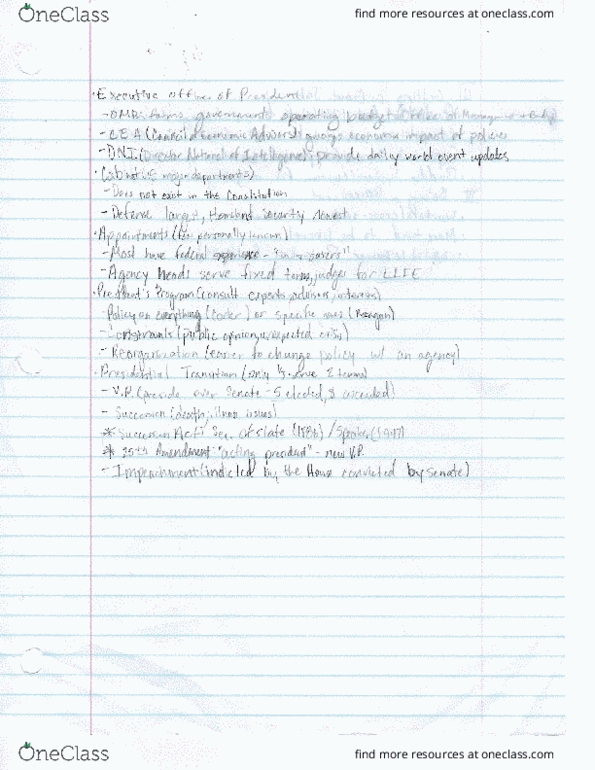 OneClass
find more resources at oneclass.com
· Executive offices of President
- OMB: government operating budget Office of Management + Budget
- CEA (Council of Economic Advisers): gauges economic impact of policies
- DNI (Director National of Intelligence): provide daily world event updates
· Cabinet (15 major departments)
- Does not exist in the Constitution
- Defense largest, Homeland security newest
· Appointments (few personally known)
- Most have federal experience - "in-and-outers"
- Agency Heads serve fixed terms, judges for LIFE
· President's Program (consult experts, advisors, interests)
- Policy on everything (Carter) or specific ones (Reagan)
- Constraints (public opinion, unexpected crisis)
- Reorganization (easier to change policy w/ an agency)
· Presidential Transition (only 1/3 serve 2 terms)
- V.P. (preside over Senate - 5 elected, 8 ascended)
- Succession (death, illness issues)
* Succession Act: Sec. of state (1886) / Speaker (1947)
* 25th Amendment: "acting president" - new V.P.
- Impeachment (indicted by the House convicted by Senate)
OneClass
find more resources at oneclass.com